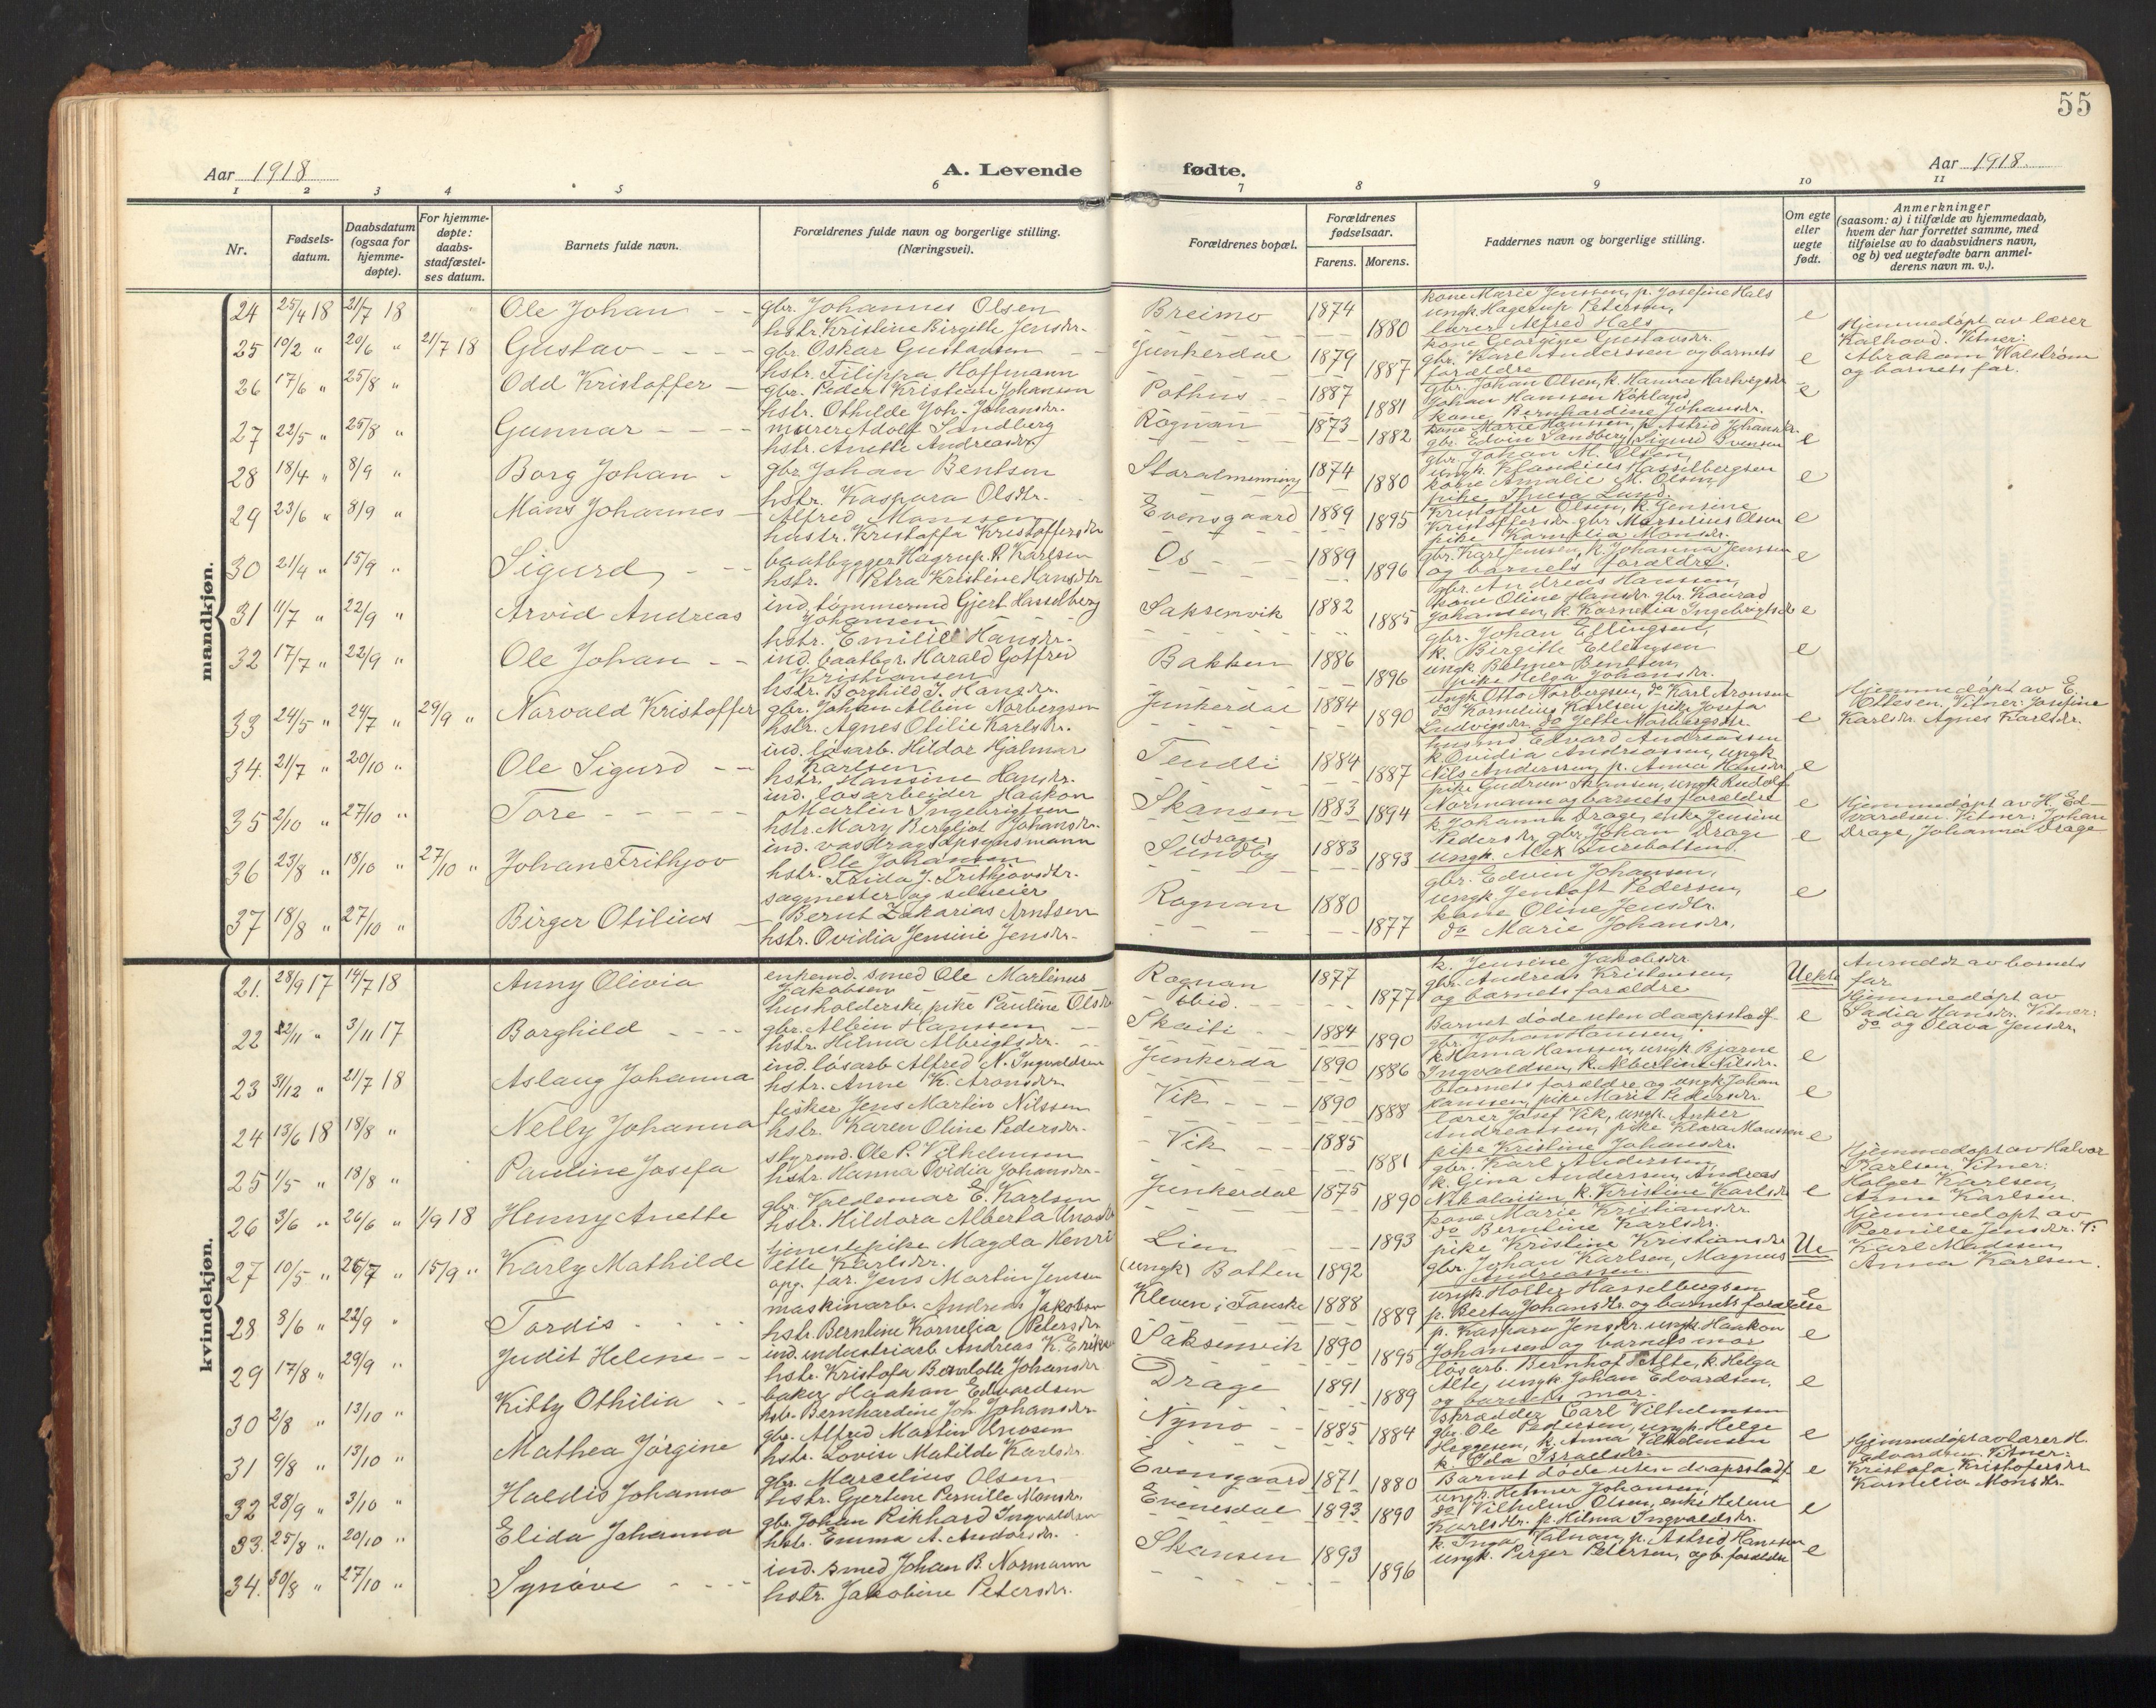 55
Aar 1918
A. Levende
fødte.
Aar 1918
1 2 3 4 5 6 7 8 9 10 11
Nr.
Fødsels-
datum.
Daabsdatum
(ogsaa for
hjemme-
døpte).
For hjemme-
døpte:
daabs-
stadfæstel-
ses datum.
Barnets fulde navn.
Forældrenes fulde navn og borgerlige stilling.
(Næringsvei).
Forældrenes bopæl.
Forældrenes
fødselsaar.
Farens. Morens.
Faddernes navn og borgerlige stilling.
Om egte
eller
uegte
født.
Anmerkninger
(saasom: a) i tilfælde av hjemmedaab,
hvem der har forrettet samme, med
tilføielse av to daabsvidners navn,
og b) ved uegtefødte barn anmel-
derens navn m. v.).
mandkjøn.
24 25/4 18 21/7 18 Ole Johan
gbr. Johannes Olsen
hstr. Kristine Birgitte Jensdtr.
Breimo 1874 1880
kone Marie Jenssen, p. Josefine Hals
ungk. Hagerup Petersen,
lærer Alfred Hals
e
25 10/2 " 20/6 " 21/7 18 Gustav
gbr. Oskar Gustavsen
hstr. Filippa Hoffmann
Junkerdal 1879 1887
kone Georgine Gustavsdr.
gbr. Karl Anderssen og barnets
forældre
e
Hjemmedøpt av lærer
Kalhovd. Vitner:
Abraham Walstrøm
og barnets far.
26 17/6 " 25/8 " Odd Kristoffer
gbr. Peder Kristian Johansen
hstr. Othilde Joh. Johansdr.
Pothus 1887 1881
gbr. Johan Olsen, k. Hanna Hartvigsdr
Johan Hanssen Røkland,
kone Bernhardine Johansdr.
e
27 22/5 " 25/8 " Gunnar
murer Adolf Sandberg
hstr. Anette Andreasdtr.
Rognan 1873 1882
kone Marie Hanssen, p. Astrid Johansdr.
gbr. Edvin Sandberg, Sigurd Svensen
e
28 18/4 " 8/9 " Borg Johan
gbr. Johan Bentsen
hstr. Kaspara Olsdtr.
Storalmenning 1874 1880
gbr. Johan M. Olsen,
ungk. Klaudius Hasselbergsen
kone Amalie M. Olsen,
pike Thresa Lund.
e
29 23/6 " 8/9 " Måns Johannes
Alfred Monssen
hustr. Kristoffa Kristoffersdtr
Evensgaard 1889 1895
Kristoffer Olsen, k. Jensine
Kristoffersdr. gbr. Marselius Olsen
pike Kornelia Monsdr.
e
30 21/4 " 15/9 " Sigurd
baatbygger Hagrup. R. Karlsen
hstr. Petra Kristine Hansdtr
Os 1889 1896
gbr. Karl Jenssen, k. Johanna Jenssen
og barnets forældre.
e
31 11/7 " 22/9 " Arvid Andreas
ind. tømmermd Gjert Hasselberg
Johansen
hstr. Emilie Hansdr.
Saksenvik 1882 1885
gbr. Andreas Hanssen,
kone Oline Hansdr. gbr. Konrad
Johansen, k. Kornelia Ingebrigtsdr
e
32 17/7 " 22/9 " Ole Johan
ind. baatbgr. Harald Gotfred
Kristiansen
hstr. Borghild J. Hansdr.
Bakken 1886 1896
gbr. Johan Ellingsen,
k. Birgitte Ellingsen
ungk. Belmer Bentsen,
pike Helga Johansdr.
e
33 24/5 " 24/7 " 29/9 " Norvald Kristoffer
gbr. Johan Albin Norbergsen
hstr. Agnes Otilie Karlsdtr.
Junkerdal 1884 1890
ungk. Otto Norbergsen, do Karl Aronsen
do Kornelius Karlsen pike Josefa
Ludvigsdr. do Jette Norbergsdr.
e
Hjemmedøpt av E.
Ottesen. Vitner: Josefine
Karlsdr. Agnes Karlsdr.
34. 21/7 " 20/10 " Ole Sigurd
ind. løsarb. Hildor Hjalmar
Karlsen
hstr. Hansine Hansdr.
Tendti 1884 1887
husmd Edvard Andreassen
k. Ovidia Andreassen, ungk.
Nils Anderssen, p. Anna Hansdr.
e
35 2/10 " 27/10 " Tore
ind. løsarbeider Haakon
Martin Ingebrigtsen
hstr. Mary Bergljot Johansdr.
Skansen 1883 1894
pike Gudrun Skansen, ungk. Rudolf
Normann og barnets forældre
e
36 23/8 " 18/10 " 27/10 " Johan Frithjov
ind. vasdragsopsynsmann
Ole Johansen
hstr. Frida J. Frithjovsdtr.
(Drage)
Sundby 1883 1893
k. Johanna Drage, enke Jensine
Pedersdr. gbr. Johan Drage
ungk. Alex
e
Hjemmedøpt av H. Ed-
vardsen. Vitner: Johan
Drage, Johanna Drage
37 18/8 " 27/10 " Birger Otilius
sagmester og selveier
Bernt Zakarias Arntsen
hstr. Ovidia Jensine Jensdr.
Rognan 1880 1877
gbr. Edvin Johansen,
ungk. Jentoft Pedersen,
kone Oline Jensdtr.
do Marie Johansdr.
e
kvindekjøn.
21. 28/9 17 14/7 18 Anny Olivia
enkemd. smed Ole Martinus
Jakobsen
husholderske pike Pauline Olsdr
Rognan 1877
ibid. 1877
k. Jensine Jakobsdr.
gbr. Andreas Kristensen,
og barnets forældre
Uekte
Anmeldt av barnets
far
22 22/11 " 3/11 17 Borghild
gbr. Albin Hanssen
hstr. Hilma Albrigtsdr.
Skaiti 1884 1890
Barnet døde uten daapsstadf
e
Hjemmedøpt av
Sadia Hansdr. Vitner:
do og Olava Jensdr.
23 31/12 " 21/7 18 Aslaug Johanna
ind. løsarb Alfred N. Ingvaldsen
hstr. Anne K. Aronsdr.
Junkerda 1890 1886
gbr. Johan Hanssen,
k Hanna Hanssen, ungk Bjarne
Ingvaldsen, k. Albertine Nilsdr.
e
24 13/6 18 18/8 " Nelly Johanna
fisker Jens Martin Nilssen
hstr. Karen Oline Pedersdr.
Vik 1890 1888
Barnets forældre og ungk Johan
Hanssen, pike Marit Pedersdr.
e
25 1/5 " 18/8 " Pauline Josefa
styrmd. Ole P. Vilhelmsen
hstr. Hanna Ovidia Johansdr.
Vik 1885 1881
lærer Josef Vik, ungk. Anker
Andreassen, pike Klara Monssen
pike Kristine Johansdr.
e
26 3/6 " 26/6 " 1/9 18 Henny Anette
gbr. Vredemar E. Karlsen
hstr. Hildora Alberta Unosdtr
Junkerdal 1875 1890
gbr. Karl Anderssen,
k. Gina Anderssen, Andreas
Nikolaisen, k. Kristine Karlsdr
e
Hjemmedøpt av Halvor
Karlsen. Vitner:
Holger Karlsen,
Anne Karlsen.
27 10/5 " 26/7 " 15/9 " Karly Mathilde
tjenestepike Magda Henri
ette Karlsdr.
opg. far. Jens Martin Jenssen
Lien 1893
(ungk) Botten 1892
kone Marie Kristiansdr.
do Berntine Karlsdr.
pike Kristine Kristiansdr
gbr. Johan Karlsen, Magnus
Andreassen.
Ue
Hjemmedøpt av
Pernille Jensdr. V:
Karl Madssen,
Anna Karlsen.
28 3/6 " 22/9 " Tordis
maskinarb. Andreas Jakobsen
hstr. Berntine Kornelia Petersdr.
Kleven i Fauske 1888 1889
ungk. Holter Hasselbergsen
p. Berta Johansdr. og barnets forældre
e
29 17/8 " 29/9 " Judit Helene
ind. industriarb Andreas K. Eriks
hstr. Kristofa Benelotte Johansdr
Saksenvik 1890 1895
p. Kaspara Jensdr. ungk. Haakon
Johansen og barnets mor
e
30 2/8 " 13/10 " Kitty Othilia
baker Haakon Edvardsen
hstr. Bernhardine Joh. Johansdr
Drage 1891 1889
løsarb. Bernhof Alte, k. Helga
Alte, ungk Johan Edvardsen.
og barnets mor.
e
31 9/8 " 13/10 " Mathea Jørgine
gbr. Alfred Martin Unosen
hstr. Lovise Matilde Karlsdr.
Nymo 1885 1884
skrædder Carl Vilhelmsen
gbr. Ole Pedersen, ungk. Helge
Heggesen, k. Anna Vilhelmsen
k. Oda Israelsdr.
e
32 28/9 " 3/10 " Haldis Johanna
gbr. Marcelius Olsen
hstr. Gjertine Pernille Monsdr.
Evensgaard 1871 1880
Barnet døde uten daapsstadf
e
Hjemmedøpt av lærer H.
Edvardsen. Vitner:
Kristofa Kristofersdr.
Kornelia Monsdr.
33. 25/8 " 20/10 " Elida Johanna
gbr. Johan Rikhard Ingvaldsen
hstr. Emma A. Andorsdr.
Evenesdal 1893 1890
ungk. Helmer Johansen,
do Vilhelm Olsen, enke Helene
Karlsdr. p. Hilma Ingvaldsdr.
e
34. 30/8 " 27/10 " Synøve
ind. smed Johan B. Normann
hstr. Jakobine Petersdr.
Skansen 1893 1896
k. Inga Valnan, p. Astrid Hanssen
ungk. Perger Petersen, og b. forældre
e